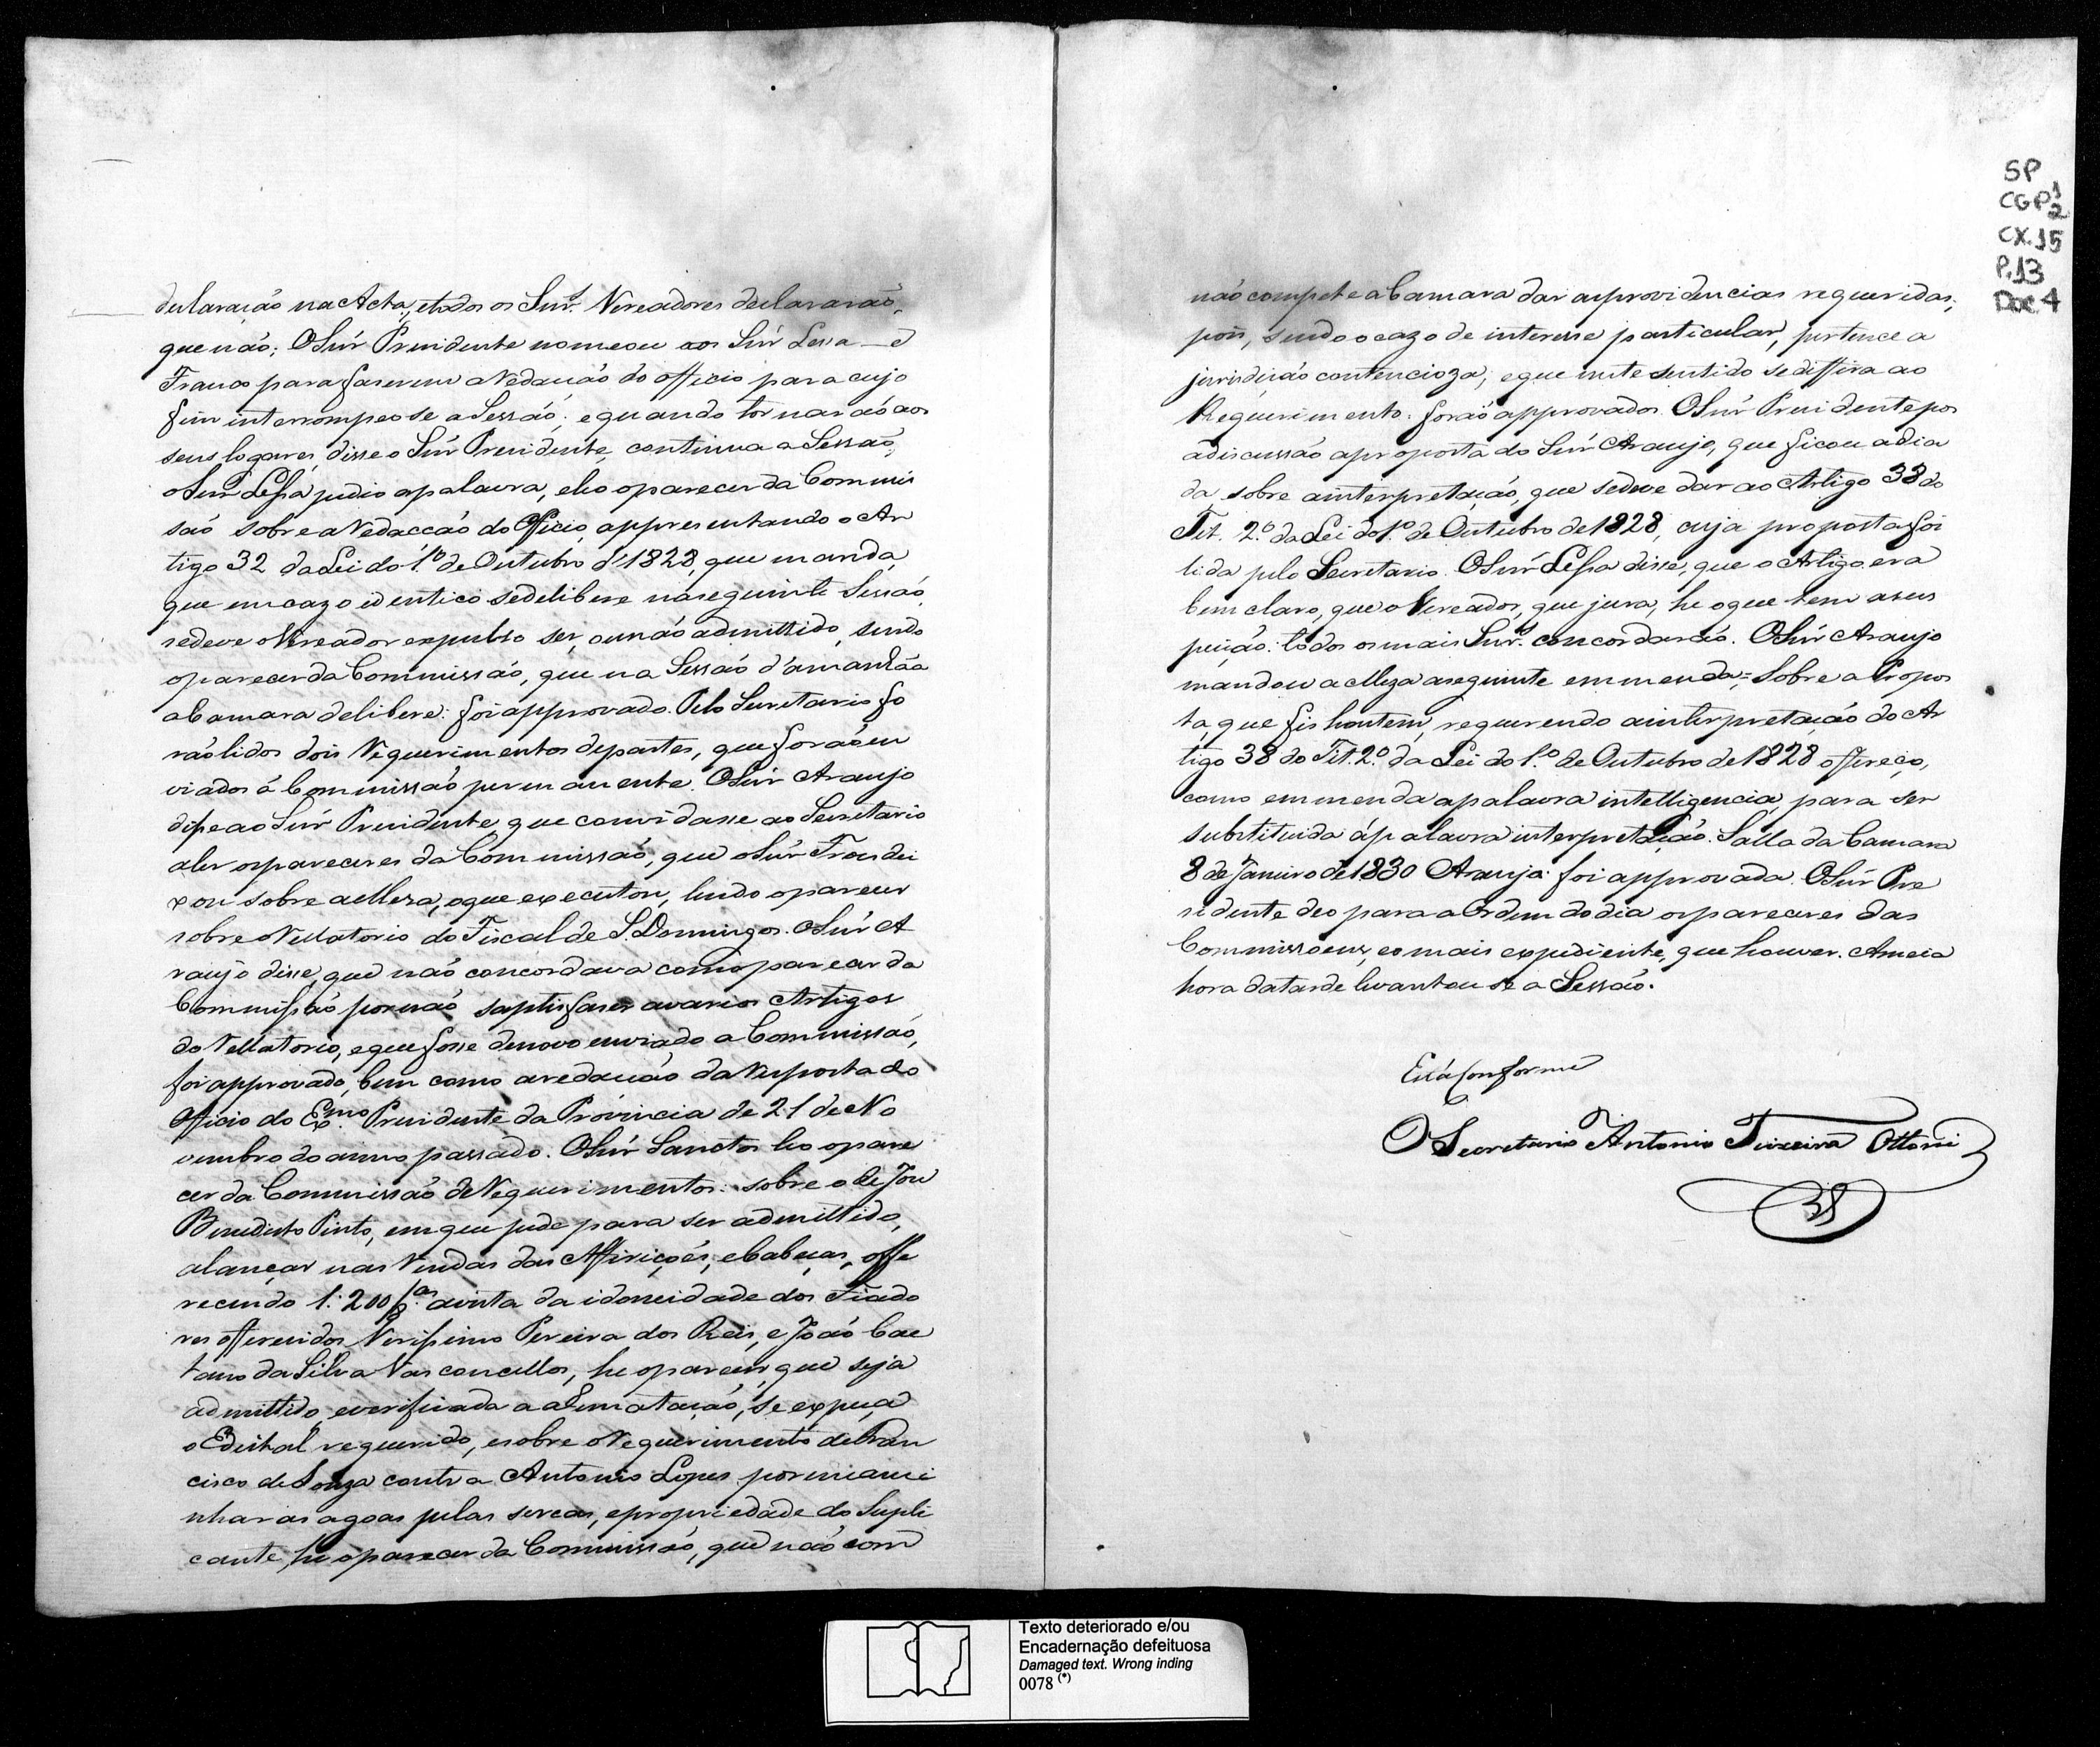 declaração na Acta, e todos os Snr.s Vereadores declararão,
que não; O Snr Prezidente nomeou aos Snr Lessa e
Franco para faserem a Redacção do officio para cujo
fim interrompeo se a Sessão: e quando tornarão aos
seus logares, disse o Snr Prezidente, continua a Sessão,
o Snr Lessa pedio a palavra, e leo o parecer da Commis
são sobre a Redaccão do Officio, appresentando o Ar
tigo 32 da Lei do 1º de Outubro d'1828, que manda,
que em cazo identico se delibere na seguinte Sessão,
se deve o Vereador expulso ser, ou não admittido, sendo
o parecer da Commissão, que na Sessão d'amanhãa
a Camara delibere: foi approvado. Pelo Secretario fo
rão lidos dois Requerimentos de partes, que forão en
viados á Commissão permanente. O Snr Araujo
disse ao Snr Prezidente, que convidasse ao Secretario
a ler os pareceres da Commissão, que o Snr Fran dei
xou sobre a Meza, o que executou, lendo o parecer
sobre o Rellatorio do Fiscal de S. Domingos. O Snr A
raujo disse, que não concordava com o parecer da
Commissão por não saptisfaser a varios Artigos
do Rellatorio, e que fosse de novo enviado a Commissão,
foi approvado, bem como a redacção da Resposta do
Officio do Exmo. Prezidente da Provincia de 21 de No
vembro do anno passado. O Snr Sanctos leo o pare
cer da Commissão de Requerimentos: sobre o de José
Benedicto Pinto, em que pede para ser admittido,
a lançar nas Rendas das Afiriçoés, e Cabeças, offe
recendo 1:200 a vista da idoneidade dos Fiado
res offerecidos Verissimo Pereira dos Reis, e João Cae
tano da Silva Vasconcellos, he o parecer, que seja
admittido, e verificada a arrematação, se expeça
o Edital requerido, e sobre o Requerimento de Fran
cisco de Souza contra Antonio Lopes por encami
nhar as agoas pelas cercas, e propriedade do Supli
cante, he o parecer da Commissão, que não com
não compete a Camara dar as providencias requeridas,
pois, sendo o cazo de interesse particular, pertence a
jurisdição contencioza, e que neste sentido se diffira ao
Requerimento: forão approvados. O Snr Prezidente pos
a discussão a proposta do Snr Araujo, que ficou adia
da sobre a interpretação, que se deve dar ao Artigo 38 do
Tit. 2.º da Lei do 1.º de Outubro de 1828, cuja proposta foi
lida pelo Secretario. O Snr Lessa disse, que o Artigo era
bem claro, que o Vereador, que jura, he o que tem a sus
peição: todos os mais Snr.s concordarão. O Snr Araujo
mandou a Meza a seguinte emmenda = Sobre a Propos
ta, que fis hontem, requerendo a interpretação do Ar
tigo 38 do Tit. 2.º da Lei do 1.º de Outubro de 1828 offereço,
como emmenda a palavra intelligencia, para ser
substituida á palavra interpretação. Salla da Camara
8 de Janeiro de 1830 Araujo: foi approvada. O Snr Pre
sidente deo para a Ordem do dia os pareceres das
Commissoens, e o mais expediente, que houver. A meia
hora da tarde levantou se a Sessão.
Está Conforme
O Secretario Antonio Teixeira Ottoni
SP
CGP 1
2
CX. 15
P. 13
Doc 4
Texto deteriorado e/ou
Encadernação defeituosa
Damaged text. Wrong inding
0078 (*)